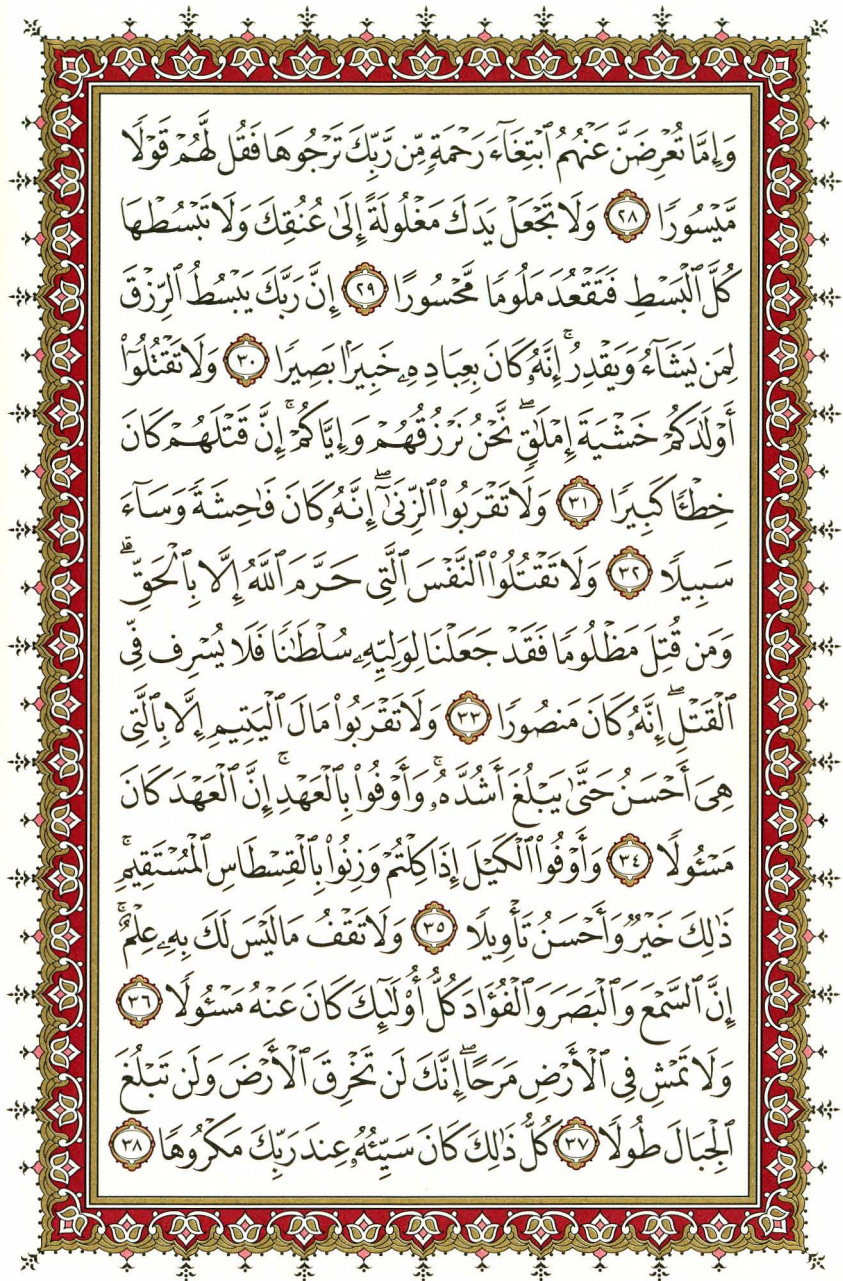 وَإِمَّا تُعْرِضَنَّ عَنْهُمُ ٱبْتِغَآءَ رَحْمَةٍ مِّن رَّبِّكَ تَرْجُوهَا فَقُل لَّهُمْ قَوْلًا
مَّيْسُورًا ٢٨ وَلَا تَجْعَلْ يَدَكَ مَغْلُولَةً إِلَىٰ عُنُقِكَ وَلَا تَبْسُطْهَا
كُلَّ ٱلْبَسْطِ فَتَقْعُدَ مَلُومًا مَّحْسُورًا ٢٩ إِنَّ رَبَّكَ يَبْسُطُ ٱلرِّزْقَ
لِمَن يَشَآءُ وَيَقْدِرُ ۚ إِنَّهُۥ كَانَ بِعِبَادِهِۦ خَبِيرًۢا بَصِيرًا ٣٠ وَلَا تَقْتُلُوٓا۟
أَوْلَـٰدَكُمْ خَشْيَةَ إِمْلَـٰقٍ ۖ نَّحْنُ نَرْزُقُهُمْ وَإِيَّاكُمْ ۚ إِنَّ قَتْلَهُمْ كَانَ
خِطْـًٔا كَبِيرًا ٣١ وَلَا تَقْرَبُوا۟ ٱلزِّنَىٰٓ ۖ إِنَّهُۥ كَانَ فَـٰحِشَةً وَسَآءَ
سَبِيلًا ٣٢ وَلَا تَقْتُلُوا۟ ٱلنَّفْسَ ٱلَّتِى حَرَّمَ ٱللَّهُ إِلَّا بِٱلْحَقِّ ۗ
وَمَن قُتِلَ مَظْلُومًا فَقَدْ جَعَلْنَا لِوَلِيِّهِۦ سُلْطَـٰنًا فَلَا يُسْرِف فِّى
ٱلْقَتْلِ ۖ إِنَّهُۥ كَانَ مَنصُورًا ٣٣ وَلَا تَقْرَبُوا۟ مَالَ ٱلْيَتِيمِ إِلَّا بِٱلَّتِى
هِىَ أَحْسَنُ حَتَّىٰ يَبْلُغَ أَشُدَّهُۥ ۚ وَأَوْفُوا۟ بِٱلْعَهْدِ ۖ إِنَّ ٱلْعَهْدَ كَانَ
مَسْـُٔولًا ٣٤ وَأَوْفُوا۟ ٱلْكَيْلَ إِذَا كِلْتُمْ وَزِنُوا۟ بِٱلْقِسْطَاسِ ٱلْمُسْتَقِيمِ ۚ
ذَٰلِكَ خَيْرٌ وَأَحْسَنُ تَأْوِيلًا ٣٥ وَلَا تَقْفُ مَا لَيْسَ لَكَ بِهِۦ عِلْمٌ ۚ
إِنَّ ٱلسَّمْعَ وَٱلْبَصَرَ وَٱلْفُؤَادَ كُلُّ أُو۟لَـٰٓئِكَ كَانَ عَنْهُ مَسْـُٔولًا ٣٦
وَلَا تَمْشِ فِى ٱلْأَرْضِ مَرَحًا ۖ إِنَّكَ لَن تَخْرِقَ ٱلْأَرْضَ وَلَن تَبْلُغَ
ٱلْجِبَالَ طُولًا ٣٧ كُلُّ ذَٰلِكَ كَانَ سَيِّئُهُۥ عِندَ رَبِّكَ مَكْرُوهًا ٣٨